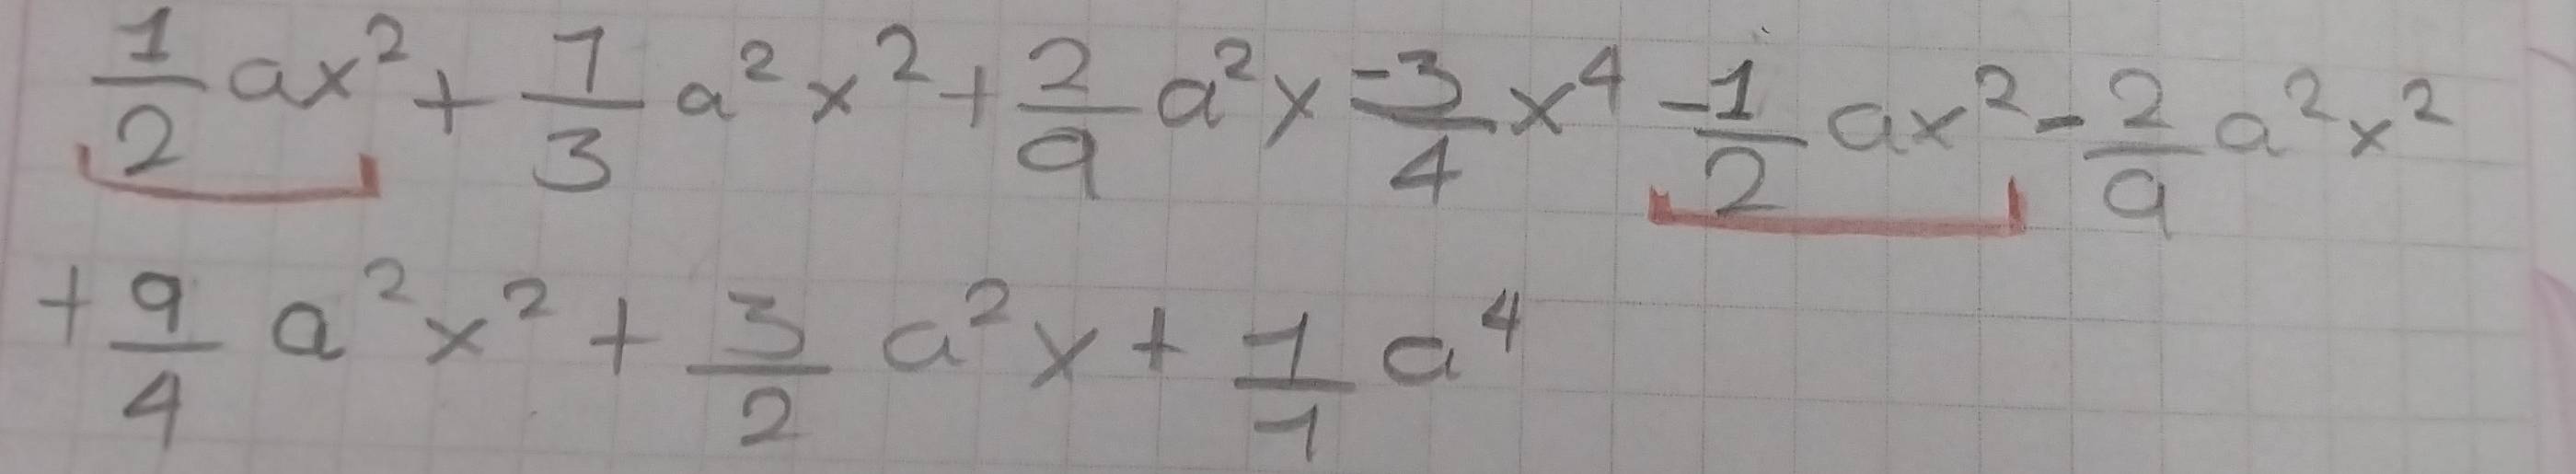 1/2 ax² + 1/3 a²x² + 2/9 a²x - 3/4 x⁴ - 1/2 ax² - 2/9 a²x²
+ 9/4 a²x² + 3/2 a²x + 1/1 a⁴